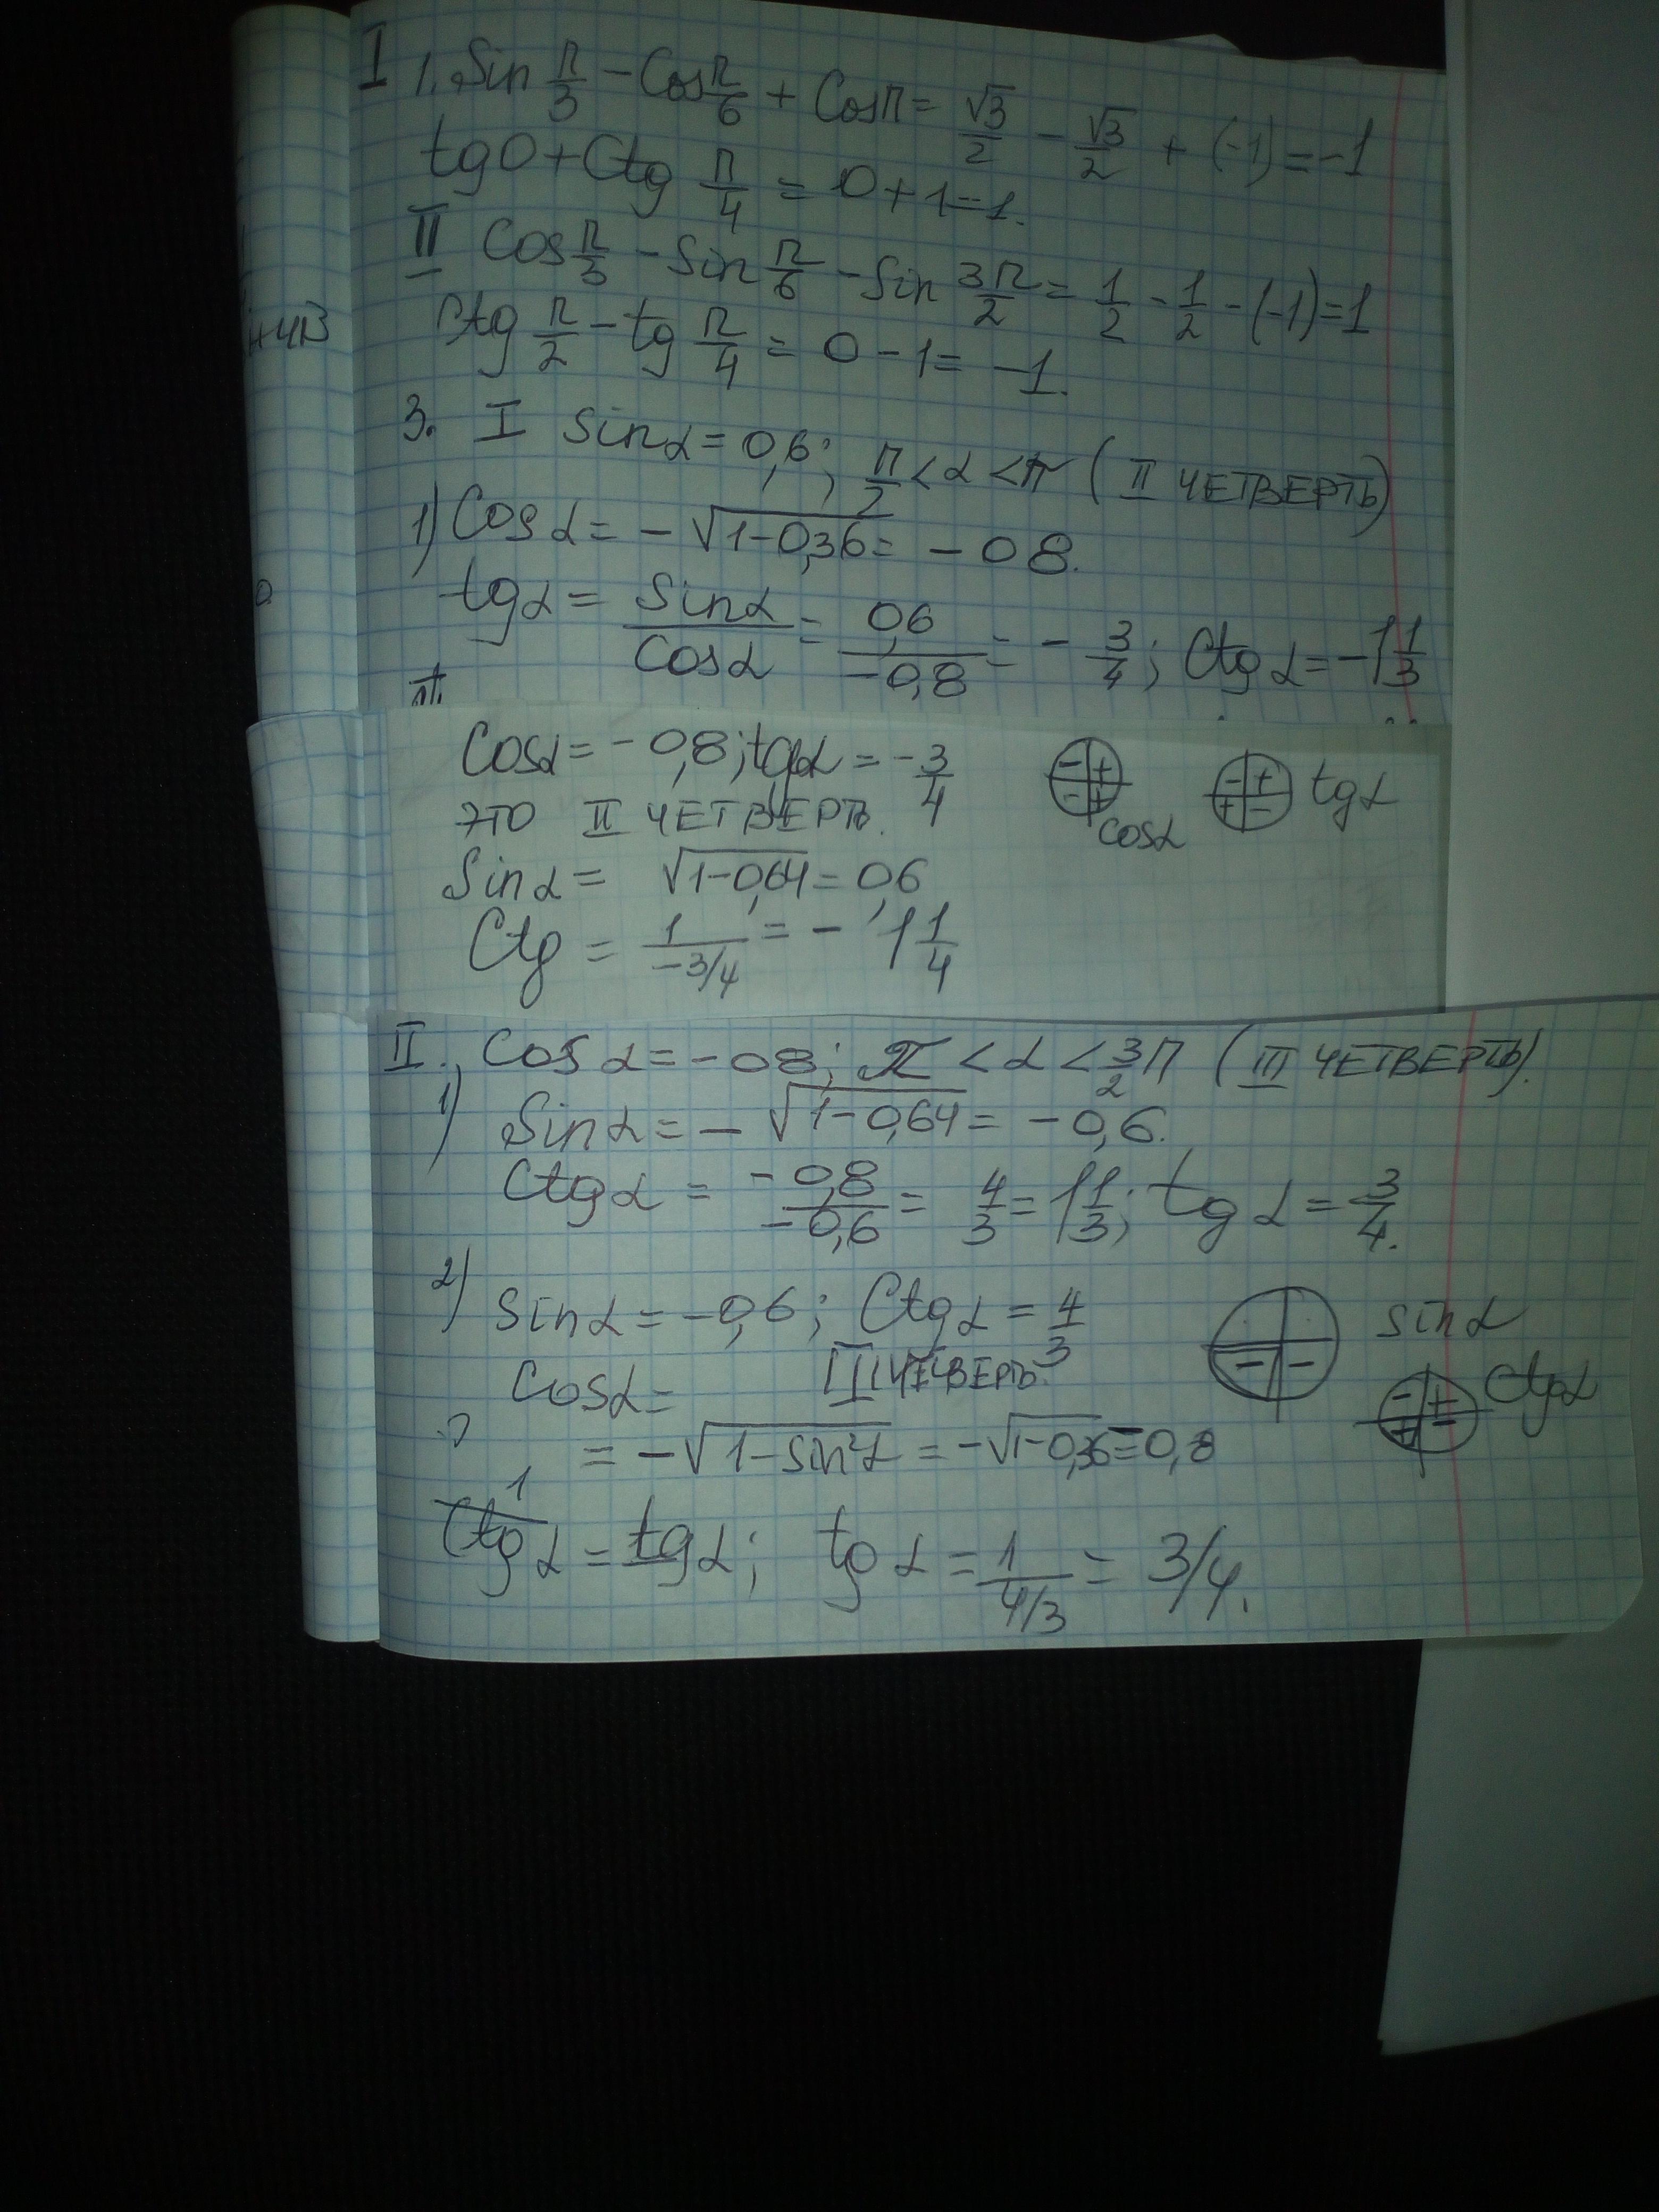 I 1. Sin π/3 - Cos π/6 + Cosπ = √3/2 - √3/2 + (-1) = -1
tg0 + Ctg π/4 = 0 + 1 = 1.
II Cos π/3 - Sin π/6 - Sin 3π/2 = 1/2 - 1/2 - (-1) = 1
Ctg π/2 - tg π/4 = 0 - 1 = -1.
3. I Sinα = 0,6; π/2 < α < π (II ЧЕТВЕРТЬ)
1) Cosα = -√(1-0,36) = -08.
tgα = Sinα/Cosα = 0,6/-0,8 = -3/4; Ctgα = -1 1/3
II.
Cosα = -0,8; tgα = -3/4
ЭТО II ЧЕТВЕРТЬ.
cosα tgα
Sinα = √(1-0,64) = 0,6
Ctg = 1/(-3/4) = -1 1/4
II. Cosα = -08; π < α < 3/2 π (III ЧЕТВЕРТЬ).
1) Sinα = -√(1-0,64) = -0,6.
Ctgα = -0,8/-0,6 = 4/3 = 1 1/3; tgα = 3/4.
2) Sinα = -0,6; Ctgα = 4/3 sinα
Cosα = III ЧЕТВЕРТЬ. Ctgα
= -√(1-sin²α) = -√(1-0,36) = -0,8
1/Ctgα = tgα; tgα = 1/(4/3) = 3/4.